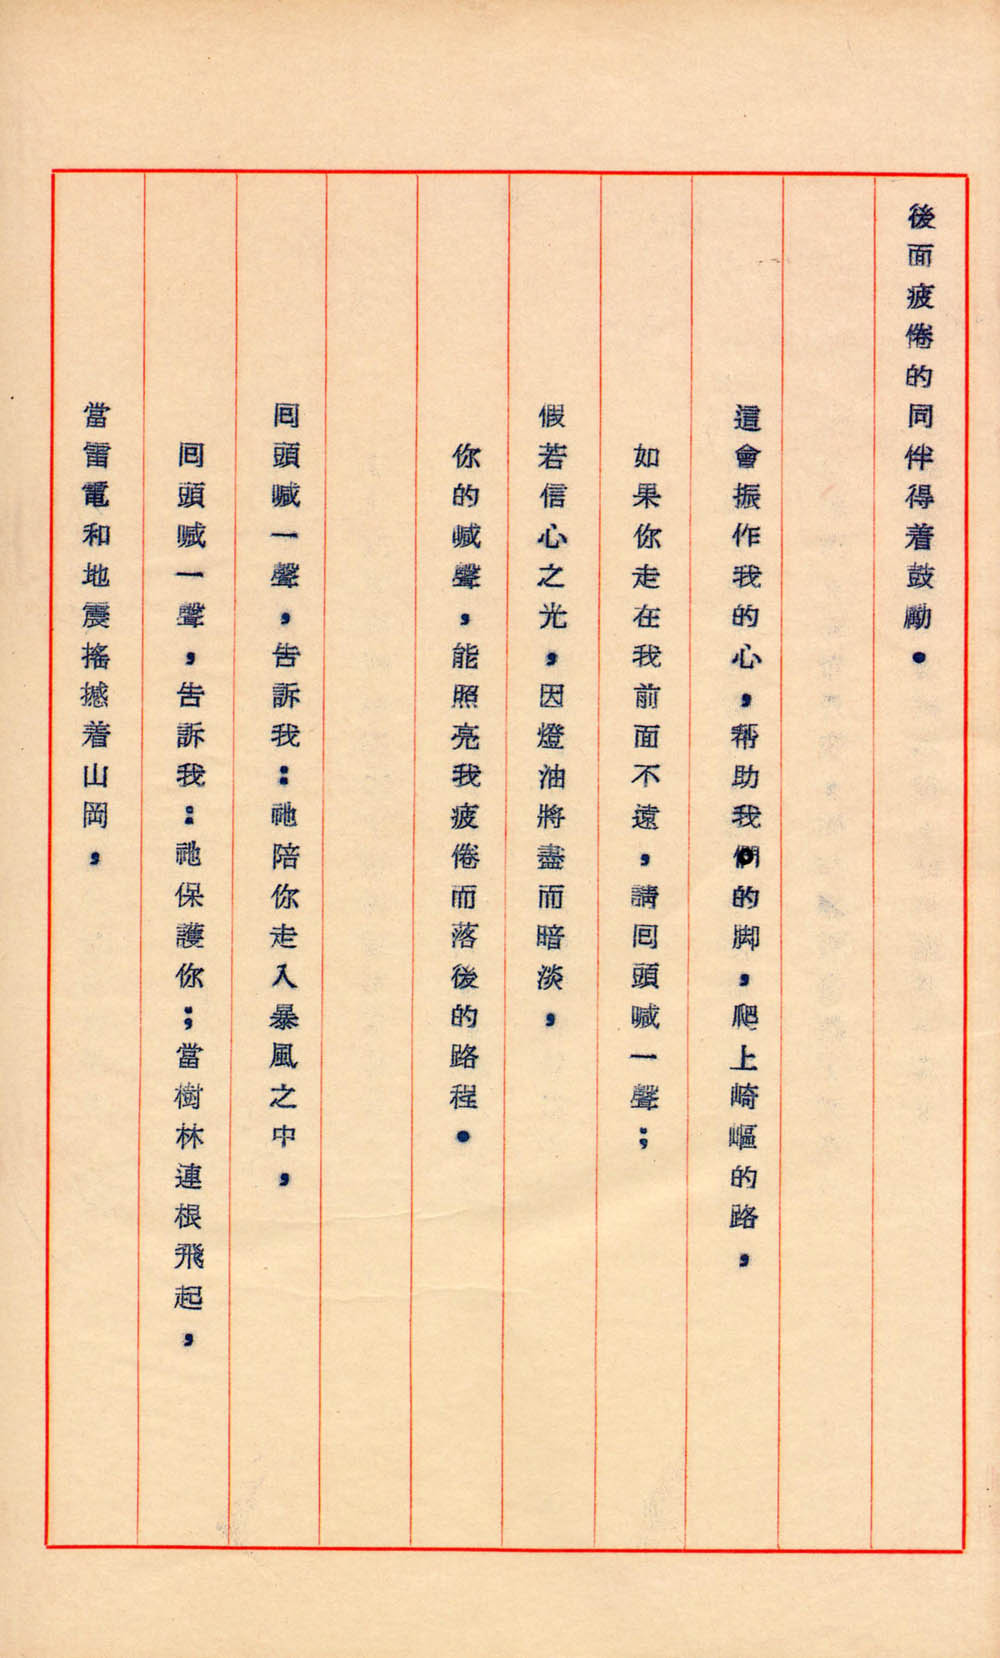 後面疲倦的同伴得着鼓勵。
這會振作我的心，幫助我們的脚，爬上崎嶇的路，
如果你走在我前面不遠，請囘頭喊一聲；
假若信心之光，因燈油將盡而暗淡，
你的喊聲，能照亮我疲倦而落後的路程。
囘頭喊一聲，告訴我：祂陪你走入暴風之中，
囘頭喊一聲，告訴我：祂保護你；當樹林連根飛起，
當雷電和地震搖撼着山岡，